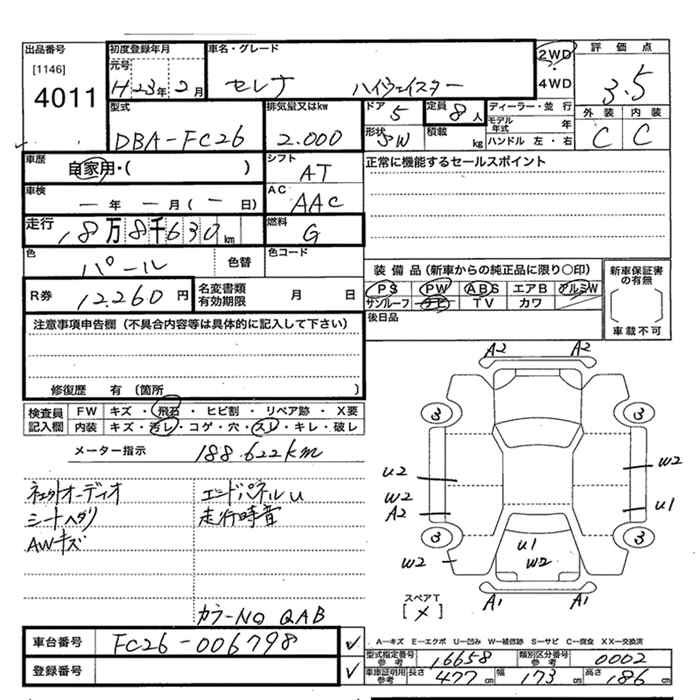 出品番号 初度登録年月 車名・グレード 2WD 評価点
[1146] 元号
4011 H23年2月 セレナ ハイウェイスター 4WD 3.5
型式 排気量又はkw ドア 5 定員 8人 ディーラー・並行 外装 内装
DBA-FC26 2.000 形状 5W 積載 kg モデル年式 年 C C
ハンドル 左・右
車歴 自家用・( ) シフト AT 正常に機能するセールスポイント
車検 ー年 ー月 (ー日) AC AAC
走行 18万8千630km 燃料 G
色 パール 色替 色コード
装備品(新車からの純正品に限り○印) 新車保証書の有無
R券 12.260円 名変書類有効期限 月 日 PS PW ABS エアB アルミW
サンルーフ ナビ TV カワ
後日品 車載不可
注意事項申告欄(不具合内容等は具体的に記入して下さい)
修復歴 有(箇所 )
検査員記入欄 FW キズ・飛石・ヒビ割・リペア跡・X要
内装 キズ・汚レ・コゲ・穴・スレ・キレ・破レ
メーター指示 188.622km
ネットオーディオ エンドパネルu
シートヘタリ 走行時音
AWキズ
カラーNO QAB
A2 A2
3 3
u2 w2
w2
A2 u1
3 3
w2 u1
w2
A1 A1
スペアT
[×]
車台番号 FC26-006798
登録番号
A-キズ E-エクボ U-凹み W-補修跡 S-サビ C-腐食 XX-交換済
型式指定番号参考 16658 類別区分番号参考 0002
車庫証明用参考 長さ 477cm 幅 173cm 高さ 186cm